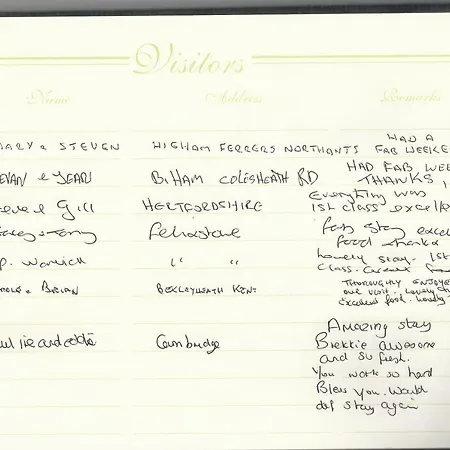 Visitors
Name Address Remarks
HAD A
ARY & STEVEN HIGHAM FERRERS NORTHANTS FAB WEEKE
HAD FAB WEE
EVAN & JEAN COLESHEATH RD THANKS
Everything was
eve & Gill HERTFORDSHIRE 1st class excelle
Felixstowe fab stay excel
food thanks
P. Warwick " " Lovely stay. 1st
class.
& BRIAN BEXLEYHEATH KENT THOROUGHLY ENJOYE
our visit. Lovely
excellent food. Lovely
Amazing stay
Cambridge Brekkie awesome
and so fresh.
You work so hard
Bless you. Would
def stay again